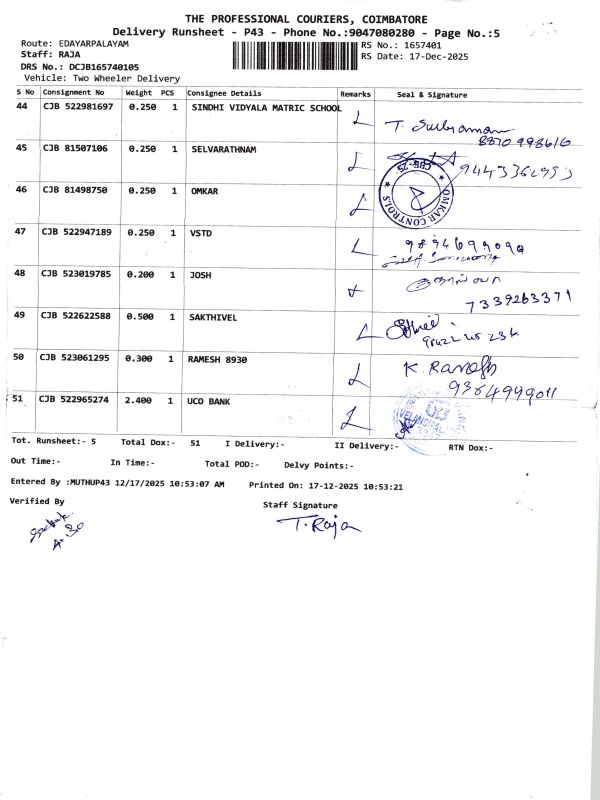 THE PROFESSIONAL COURIERS, COIMBATORE
Delivery Runsheet - P43 - Phone No.:9047080280 - Page No.:5
Route: EDAYARPALAYAM
RS No.: 1657401
Staff: RAJA
RS Date: 17-Dec-2025
DRS No.: DCJB165740105
Vehicle: Two Wheeler Delivery
S No Consignment No Weight PCS Consignee Details Remarks Seal & Signature
44 CJB 522981697 0.250 1 SINDHI VIDYALA MATRIC SCHOOL L
T. Subraman
8870998616
45 CJB 81507106 0.250 1 SELVARATHNAM L
46 CJB 81498750 0.250 1 OMKAR L
CBE-25
OMKAR CONTROLS
47 CJB 522947189 0.250 1 VSTD L
9894699090
48 CJB 523019785 0.200 1 JOSH
7339263371
49 CJB 522622588 0.500 1 SAKTHIVEL L
50 CJB 523061295 0.300 1 RAMESH 8930 L
K. Ramesh
9384999011
51 CJB 522965274 2.400 1 UCO BANK L
Tot. Runsheet:- 5 Total Dox:- 51 I Delivery:- II Delivery:- RTN Dox:-
Out Time:- In Time:- Total POD:- Delvy Points:-
Entered By :MUTHUP43 12/17/2025 10:53:07 AM Printed On: 17-12-2025 10:53:21
Verified By
Staff Signature
T. Raja